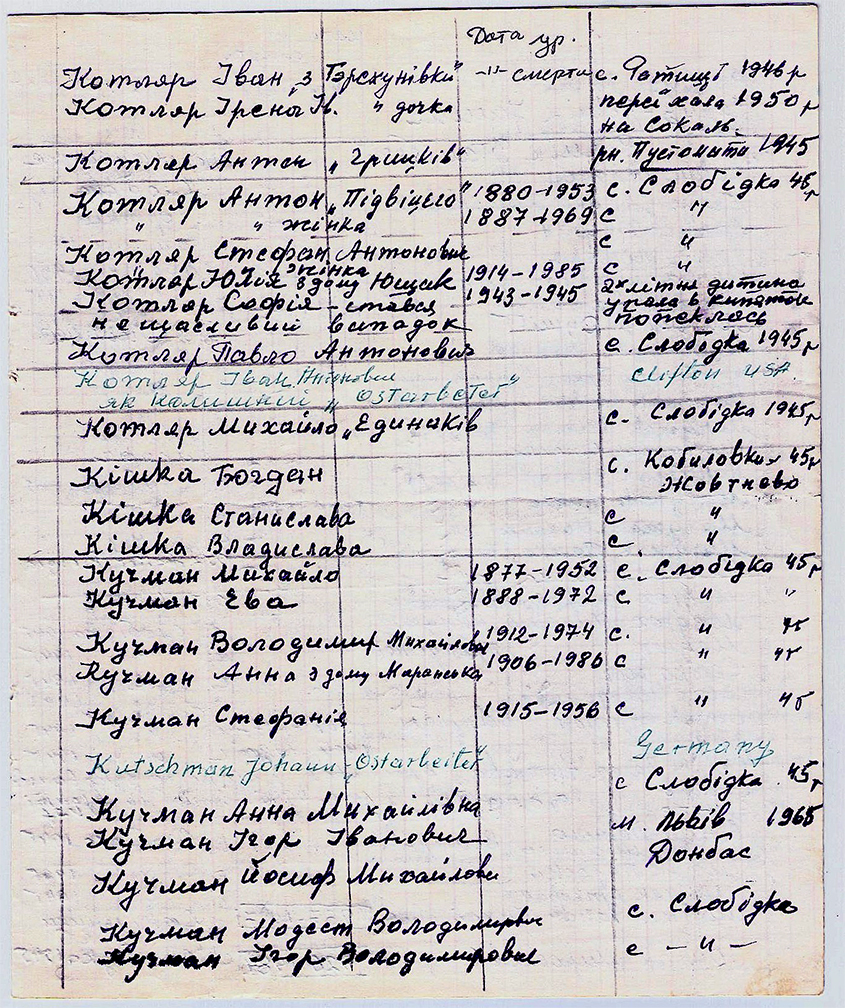 Дата ур.
Котляр Іван „з Гэрсхунівки" -"- смерти с. Ратищі 1946 р
Котляр Ірена Ів. " дочка переїхала 1950 р
на Сокаль.
Котляр Антон „Грицків" рн. Пустомити 1945
Котляр Антон „Підвіцего" 1880-1953 с. Слобідка 45 р
" " жінка 1887-1969 с "
Котляр Стефан Антонович с "
" жінка
Котляр Юлія з дому Ющак 1914-1985 с "
Котляр Софія - стався 1943-1945 2х літня дитина
нещасливий випадок упала в кипяток
попеклась
Котляр Павло Антонович с. Слобідка 1945 р
Котляр Іван Антонович Clifton USA.
як колишній „Ostarbeiter"
Котляр Михайло „Единаків с. Слобідка 1945 р
Кішка Богдан с. Кобиловки 45 р
Жовтнево
Кішка Станислава с "
Кішка Владислава с "
Кучман Михайло 1877-1952 с. Слобідка 45 р
Кучман Ева 1888-1972 с " "
Кучман Володимир Михайлович 1912-1974 с. " 45
Кучман Анна з дому Маранська 1906-1986 с " 45
Кучман Стефанія 1915-1956 с " 45
Kutschman Johann „Ostarbeiter" Germany
с Слобідка 45 р
Кучман Анна Михайлівна
Кучман Ігор Іванович м. Львів 1965
Кучман Йосиф Михайлович Донбас
Кучман Модест Володимирович с. Слобідка
Кучман Ігор Володимирович с - " -